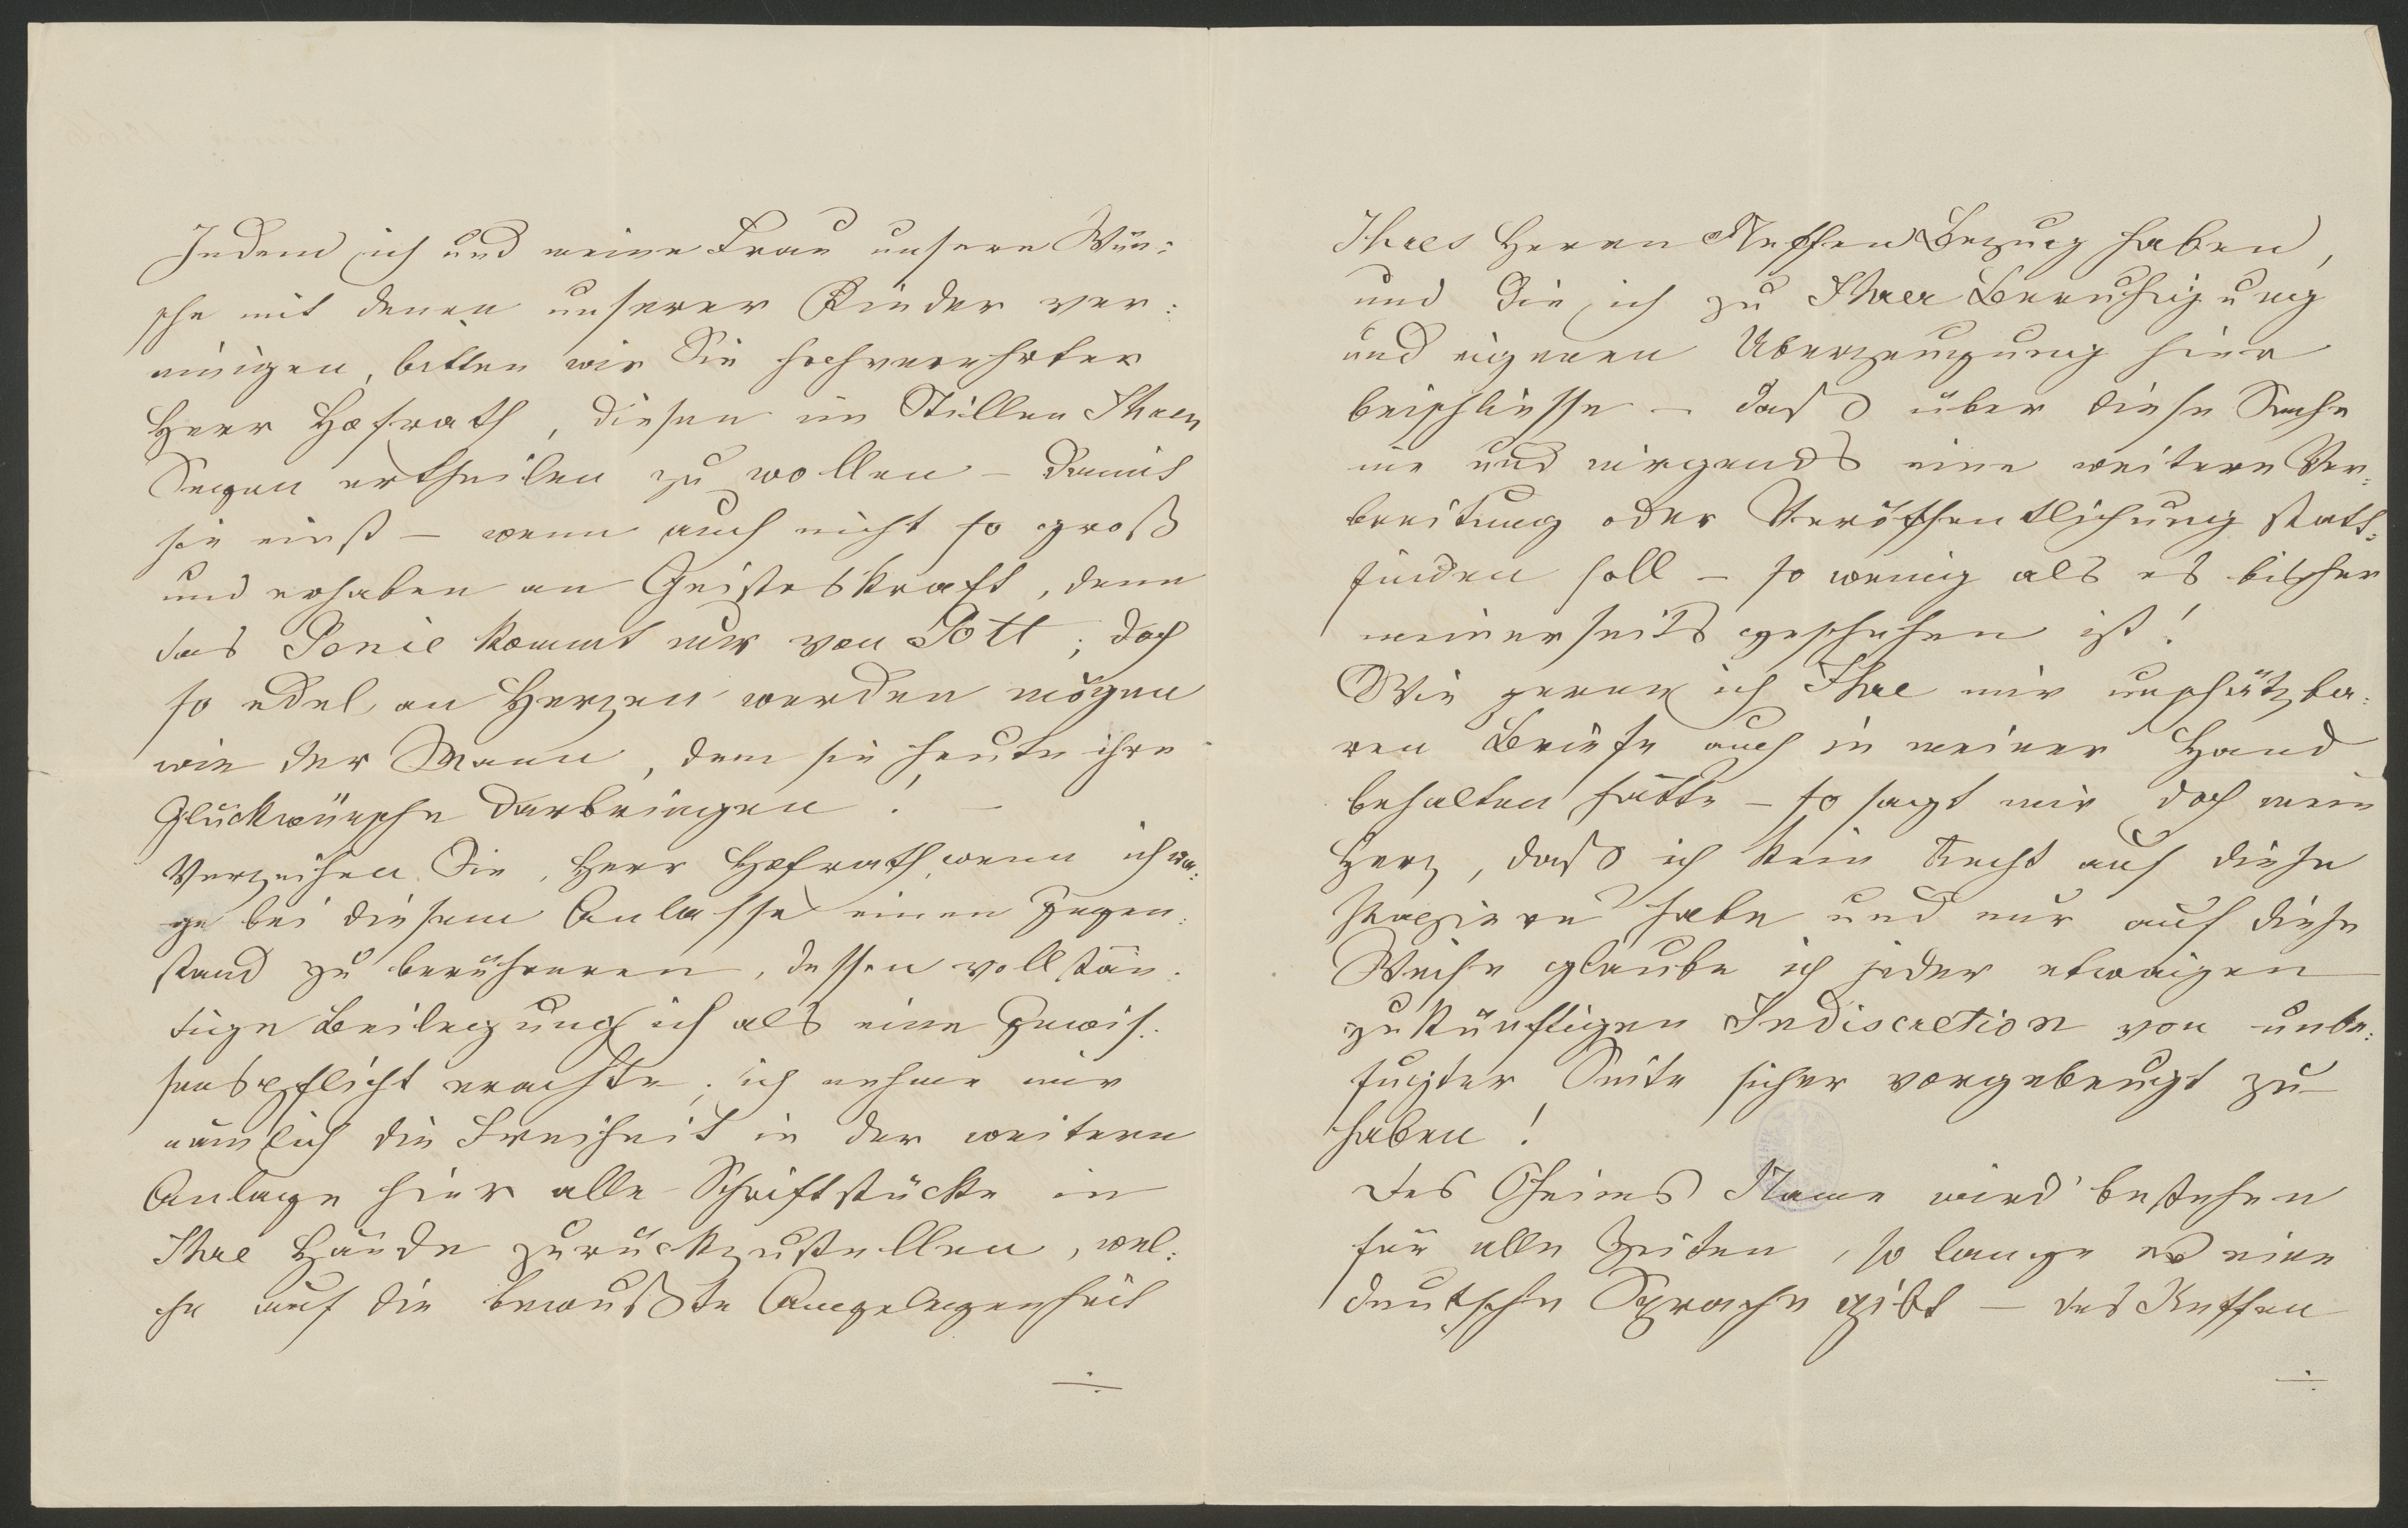 Indem ich und meine Frau unsere Wün:
sche mit denen unserer Kinder ver:
einigen, bitten wir Sie hochverehrter
Herr Hofrath, diesen im Stillen Ihren
Segen ertheilen zu wollen – damit
sie einst – wenn auch nicht so groß
und erhaben an Geisteskraft, denn
das Genie kommt nur von Gott; doch
so edel an Herzen werden mögen
wie der Mann, dem sie heute ihre
Glückwünsche darbringen! –
Verzeihen Sie, Herr Hofrath, wenn ich wa:
ge bei diesem Anlasse einen Gegen:
stand zu berühreren, dessen vollstän:
dige Beilegung ich als eine Gewis:
senspflicht erachte; ich nehme mir
nämlich die Freiheit in der weitern
Anlage hier alle Schriftstücke in
Ihre Hände zurückzustellen, wel:
che auf die bewußte Angelegenheit
Ihres Herren Neffen Bezug haben,
und die ich zu Ihrer Beruhigung
und eigenen Uberzeugung hier
beischliesse – daß über diese Sache
nie und nirgends eine weitere Ver:
breitung oder Veröffentlichung statt:
finden soll – so wenig als es bisher
meinerseits geschehen ist!
Wie gerne ich Ihre mir unschätzba:
ren Briefe auch in meiner Hand
behalten hätte – so sagt mir doch mein
Herz, daß ich kein Recht auf diese
Papiere habe und nur auf diese
Weise glaube ich jeder etwaigen
zukünftigen Indiscretion von unbe:
fugter Seite sicher vorgebeugt zu
haben!
Des Oheims Name wird bestehen
für alle Zeiten, so lange es eine
deutsche Sprache gibt – des Neffen